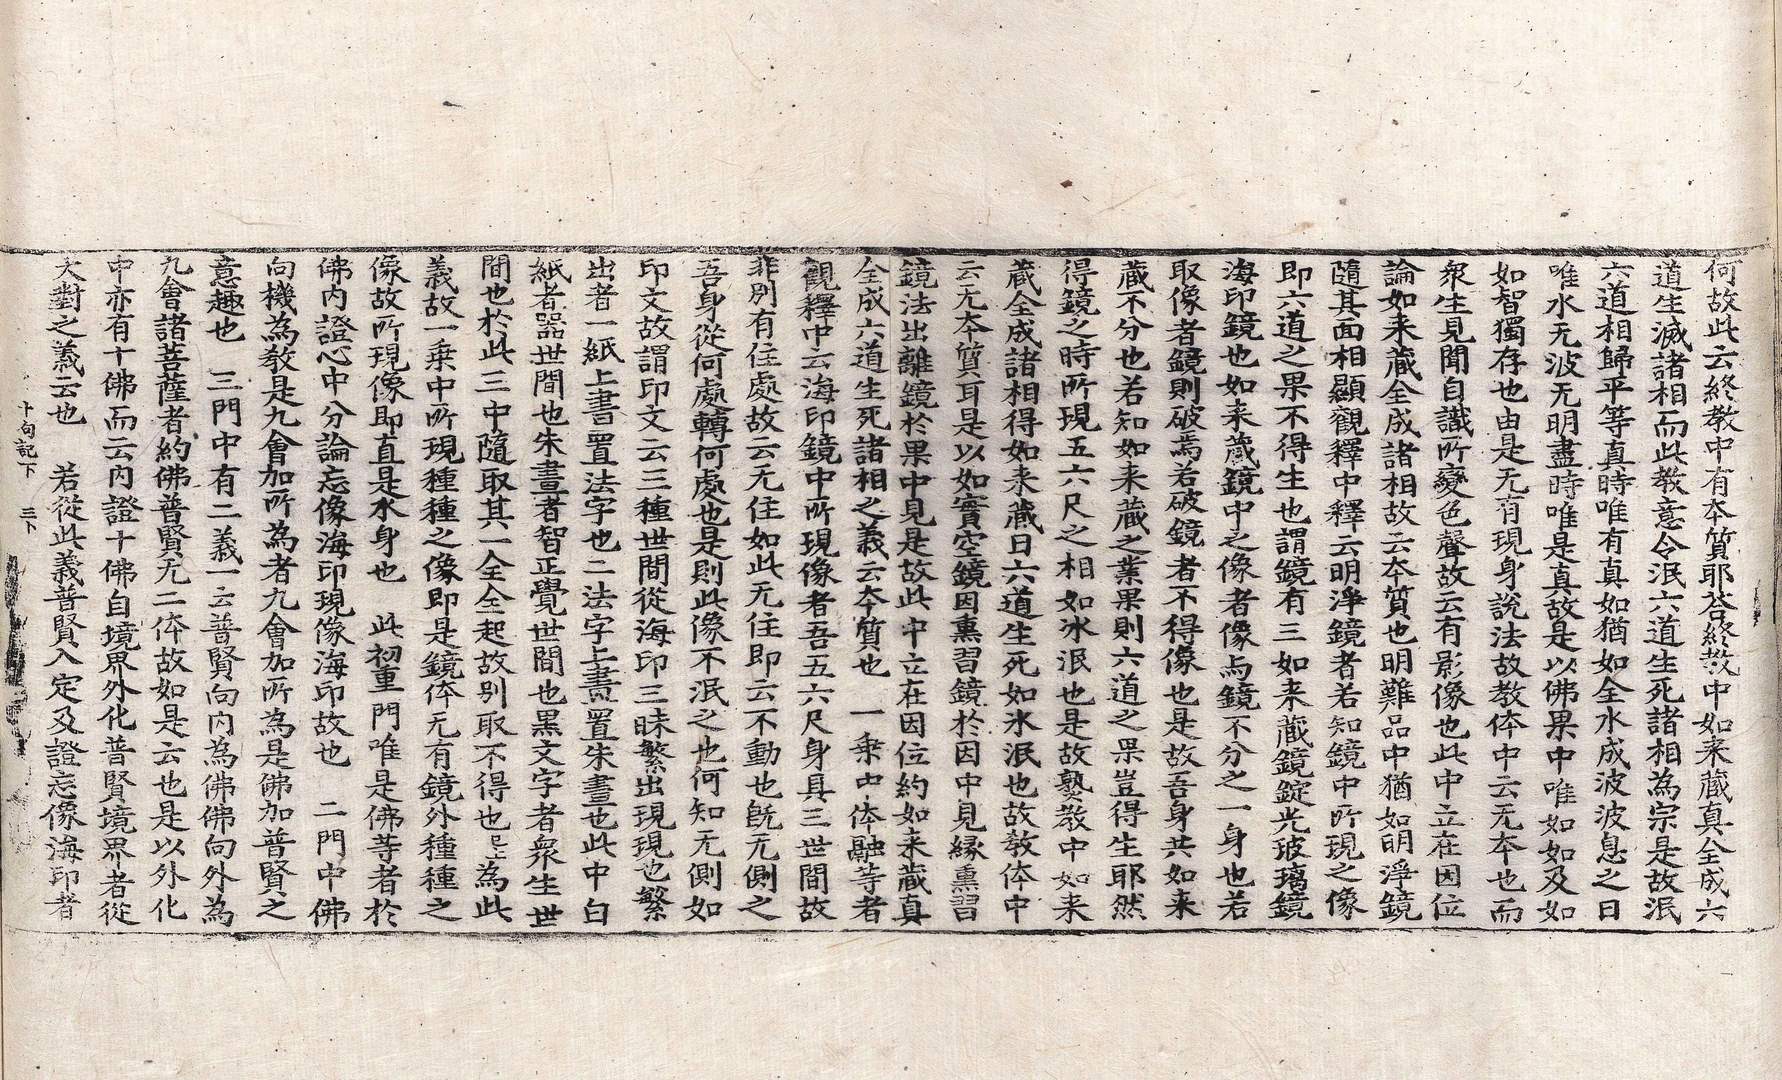 何故此云終教中有本質耶荅終教中如来蔵真全成六
道生滅諸相而此教意令泯六道生死諸相為宗是故泯
六道相歸平等真時唯有真如猶如全水成波波息之日
唯水无波无明盡時唯是真故是以佛果中唯如如及如
如智獨存也由是无有現身說法故教体中云无夲也而
衆生見聞自識所變色聲故云有影像也此中立在因位
論如来蔵全成諸相故云夲質也明難品中猶如明淨鏡
隨其面相顯觀釋中釋云明淨鏡者若知鏡中所現之像
即六道之果不得生也謂鏡有三如来蔵鏡錠光玻璃鏡
海印鏡也如来蔵鏡中之像者像与鏡不分之一身也若
取像者鏡則破焉若破鏡者不得像也是故吾身共如来
蔵不分也若知如来蔵之業果則六道之果豈得生耶然
得鏡之時所現五六尺之相如氷泯也是故熟教中如来
蔵全成諸相得如来蔵日六道生死如氷泯也故教体中
云无夲質耳是以如實空鏡因熏習鏡於因中見縁熏習
鏡法出離鏡於果中見是故此中立在因位約如来蔵真
全成六道生死諸相之義云夲質也　一乗中体融等者
觀釋中云海印鏡中所現像者吾五六尺身具三世間故
非別有住處故云无住如此无住即云不動也旣无側之
吾身從何處轉何處也是則此像不泯之也何知无側如
印文故謂印文云三種世間從海印三昧繁出現現也繁
出者一紙上書置法字也二法字上畫置朱畫也此中白
紙者器世間也朱畫者智正覺世間也黒文字者衆生世
間也於此三中隨取其一全全起故別取不得也是為此
義故一乗中所現種種之像即是鏡体无有鏡外種種之
像故所現像即直是水身也　此初重門唯是佛等者於
佛内證心中分論忘像海印現像海印故也　二門中佛
向機為教是九會加所為者九會加所為是佛加普賢之
意趣也　三門中有二義一云普賢向内為佛佛向外為
九會諸菩薩者約佛普賢无二体故如是云也是以外化
中亦有十佛而云内證十佛自境界外化普賢境界者從
大對之義云也　若從此義普賢入定及證忘像海印者
十句記下　三卜